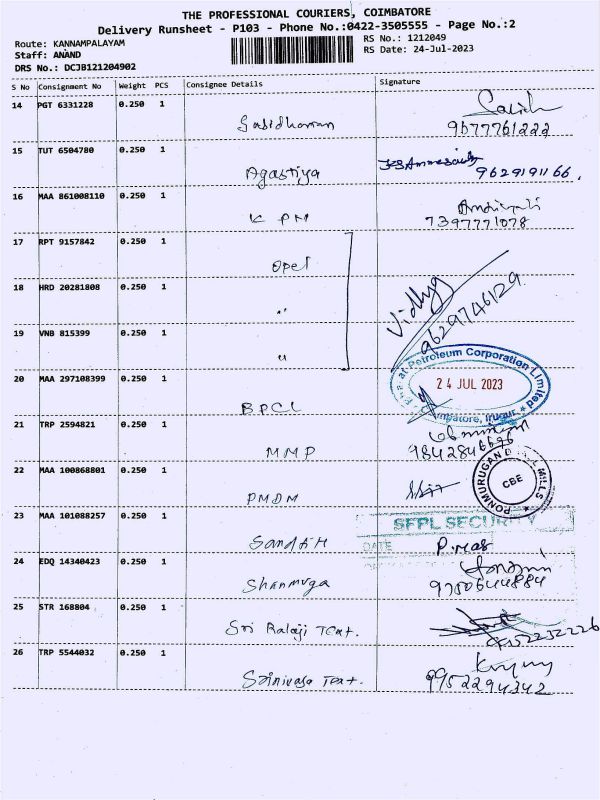 THE PROFESSIONAL COURIERS, COIMBATORE
Delivery Runsheet - P103 - Phone No.:0422-3505555 - Page No.:2
Route: KANNAMPALAYAM
RS No.: 1212049
Staff: ANAND
RS Date: 24-Jul-2023
DRS No.: DCJB121204902
S No Consignment No Weight PCS Consignee Details Signature
14 PGT 6331228 0.250 1 Sasidharan
9677761222
15 TUT 6504780 0.250 1 Agastiya 9629191166.
16 MAA 861008110 0.250 1 K PM
7397771078
17 RPT 9157842 0.250 1 Opel
18 HRD 20281808 0.250 1 " Vidhya
9629746129
19 VNB 815399 0.250 1 "
Petroleum Corporation Limited
24 JUL 2023
20 MAA 297108399 0.250 1 BPCL
21 TRP 2594821 0.250 1 MMP
9842846696
22 MAA 100868801 0.250 1 PMDM
MILLS
CBE
23 MAA 101088257 0.250 1 Sandfit
SFPL SECURITY
DATE
24 EDQ 14340423 0.250 1 Shanmuga
9750644884
25 STR 168804 0.250 1 Sri Balaji Text.
26 TRP 5544032 0.250 1 Srinivasa Text.
9952294342